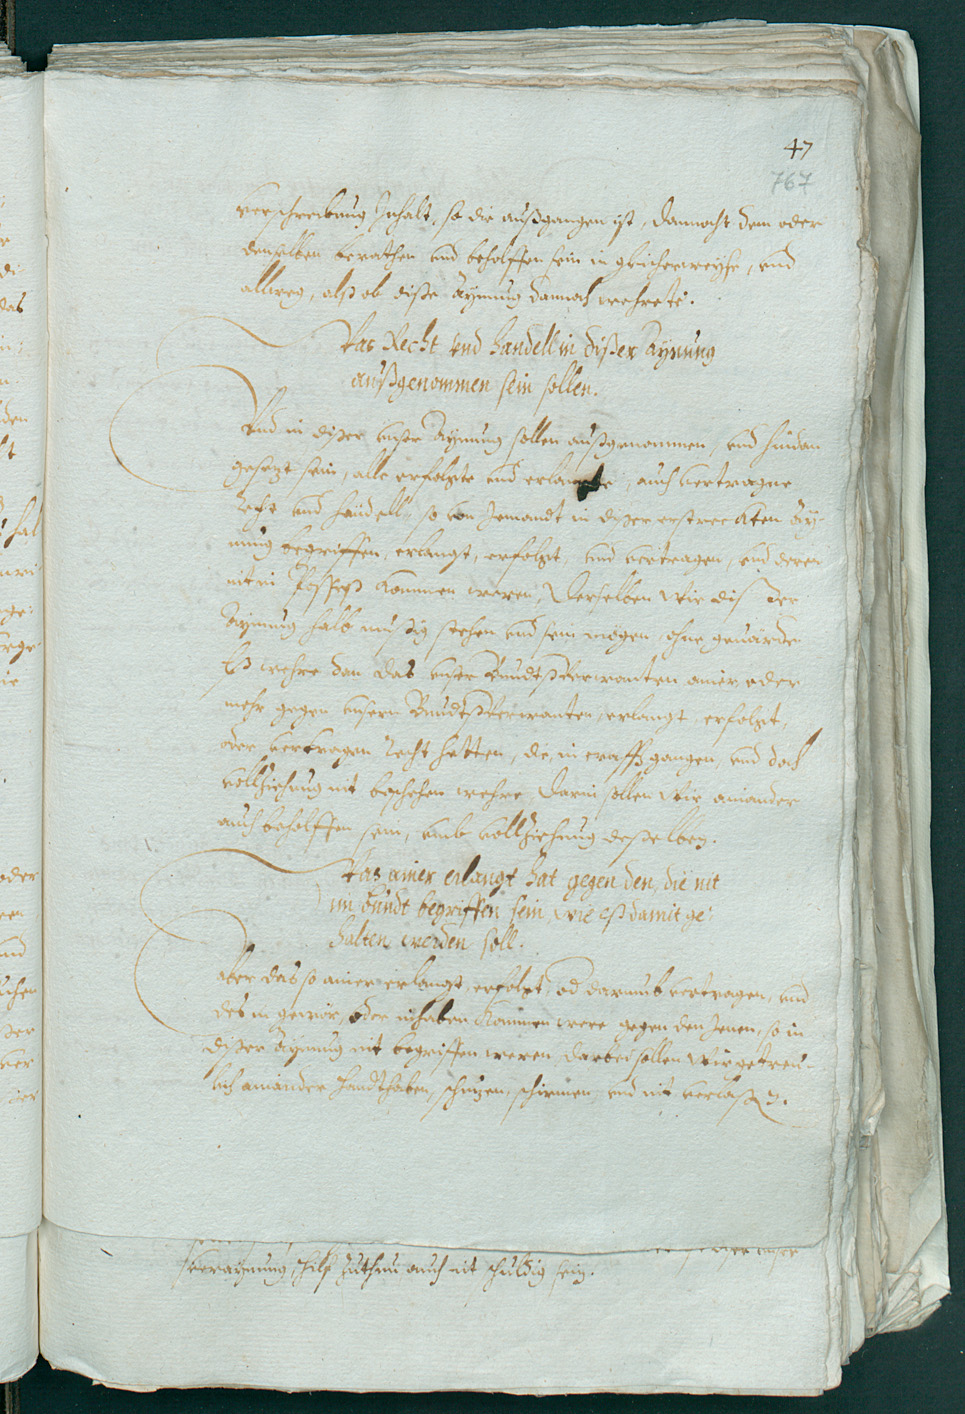 47
767
verschreibung Inhalt, so die außgangen ist, dannocht dem oder
denselben berathen vnd beholffen sein in gleicherweyse, vnd
allweg, alß ob diße Aynung dannoch wehrete.
Das Recht vnd handell in dißer Aynung
außgenommen sein sollen.
Vnd in dißer vnßer Aynung sollen außgenommen, vnd hindan
gesezt sein, alle erfolgte vnd erlangte, auch vertragne
Recht vnd händell, so von Jemandt in dißer erstreckten Ay-
nung begriffen, erlangt, erfolgt, vnd vertragen, vnd deren
nit in Posseß kommen weren, derselben wir diß der
Aynung halb müssig stehen vnd sein mögen, ohne geuärde
Eß wehre dan das vnßer Bundtßverwanten ainer oder
mehr gegen vnßern Bundtßverwanten, erlangt, erfolgt,
oder vertragen Recht hetten, die in crafft gangen, vnd doch
vollziehung nit beschehen wehre, darin sollen wir ainander
auch beholffen sein, vmb vollziehung deßelben.
Was ainer erlangt hat gegen den, die nit
im Bundt begriffen sein, wie eß damit ge-
halten werden soll.
Aber das so ainer erlangt, erfolgt, od darumb vertragen, vnd
des in gewör, oder inhaben kommen were gegen den Jenen, so in
dißer Aynung nit begriffen weren darbei sollen wir getreu-
lich ainander handthaben, schuzen, schirmen, vnd nit verlaßen.
veraynung, hilf zuthun auch nit schuldig sein.